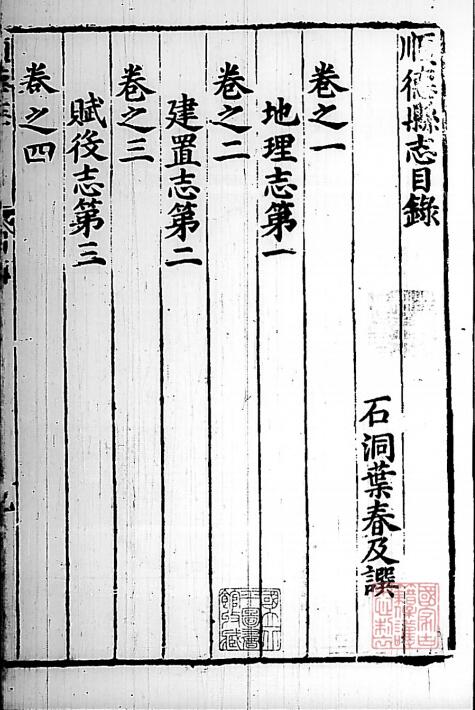 順德縣志目錄
石洞葉春及譔
卷之一
地理志第一
卷之二
建置志第二
卷之三
賦役志第三
卷之四